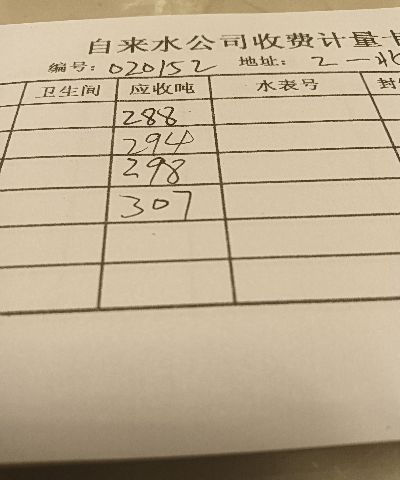 自来水公司收费计量卡
编号：020152 地址：2一
卫生间 应收吨 水表号 封
288
294
298
307